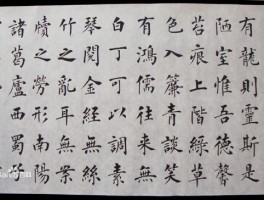 有龍則靈斯是
陋室惟吾德馨
苔痕上階綠草
色入簾青談笑
有鴻儒往來無
白丁可以調素
琴閱金經無絲
竹之亂耳無案
牘之勞形南陽
諸葛廬西蜀子